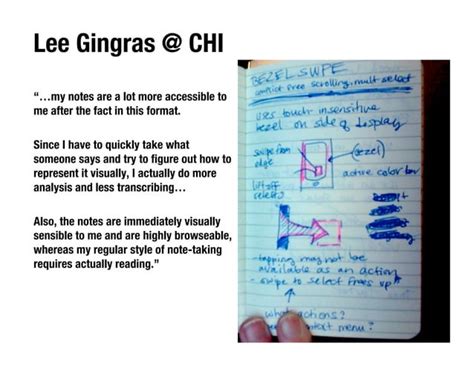 Lee Gingras @ CHI
“…my notes are a lot more accessible to
me after the fact in this format.
Since I have to quickly take what
someone says and try to figure out how to
represent it visually, I actually do more
analysis and less transcribing…
Also, the notes are immediately visually
sensible to me and are highly browseable,
whereas my regular style of note-taking
requires actually reading.”
BEZEL SWIPE
conflict free scrolling, mult select
uses touch insensitive
bezel on side of display
swipe from
edge
(bezel)
active color bar
lift off
- tapping may not be
available as an action
- swipe to select frees up
what actions?
menu?